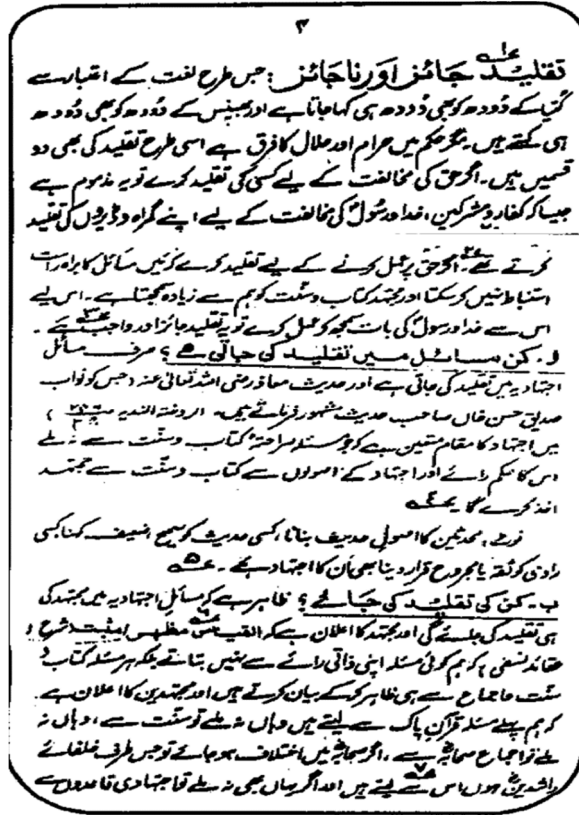 ۳
تقلید جائز اور ناجائز : جس طرح لغت کے اعتبار سے
کتیا کے دودھ کو بھی دودھ ہی کہا جاتا ہے اور بھینس کے دودھ کو بھی دودھ
ہی کہتے ہیں۔ مگر حکم میں حرام اور حلال کا فرق ہے اسی طرح تقلید کی بھی دو
قسمیں ہیں۔ اگر حق کی مخالفت کے لیے کسی کی تقلید کرے تو یہ مذموم ہے
جیسا کہ کفار و مشرکین، خدا اور رسولؐ کی مخالفت کے لیے اپنے گمراہ وڈیروں کی تقلید
کرتے تھے۔ اگر حق پر عمل کرنے کے لیے تقلید کرے کہ میں مسائل کا براہ راست
استنباط نہیں کر سکتا اور مجتہد کتاب و سنت کو ہم سے زیادہ سمجھتا ہے۔ اس لیے
اس سے خدا و رسولؐ کی بات سمجھ کو عمل کرے تو یہ تقلید جائز اور واجب ہے۔
ا۔ کن مسائل میں تقلید کی جاتی ہے ؟ صرف مسائل
اجتہادیہ میں تقلید کی جاتی ہے اور حدیث معاذ رضی اللہ تعالیٰ عنہ (جس کو نواب
صدیق حسن خاں صاحب حدیث مشہور فرماتے ہیں۔ الروضة الندیہ )
میں اجتہاد کا مقام متعین ہے کہ جو مسئلہ صراحۃً کتاب و سنت سے نہ ملے
اس کا حکم رائے اور اجتہاد کے اصولوں سے کتاب و سنت سے مجتہد
اخذ کرے گا ۴
نوٹ : محدثین کا اصول حدیث بنانا، کسی حدیث کو صحیح، ضعیف کہنا، کسی
راوی کو ثقہ یا مجروح قرار دینا بھی ان کا اجتہاد ہے۔ ۵
ب۔ کن کی تقلید کی جائے ؟ ظاہر ہے کہ مسائل اجتہادیہ میں مجتہد کی
ہی تقلید کی جائے گی اور مجتہد کا اعلان ہے کہ القیاس مظہر لا مثبت (شرح
عقائد نسفی) کہ ہم کوئی مسئلہ اپنی ذاتی رائے سے نہیں بتاتے بلکہ ہر مسئلہ کتاب و
سنت و اجماع سے ہی ظاہر کر کے بیان کرتے ہیں اور مجتہدین کا اعلان ہے
کہ ہم پہلے مسئلہ قرآن پاک سے لیتے ہیں وہاں نہ ملے تو سنت سے، وہاں نہ
ملے تو اجماع صحابہؓ سے، اگر صحابہؓ میں اختلاف ہو جائے تو جس طرف خلفائے
راشدینؓ ہوں اس سے لیتے ہیں اور اگر یہاں بھی نہ ملے تو اجتہادی قاعدوں سے